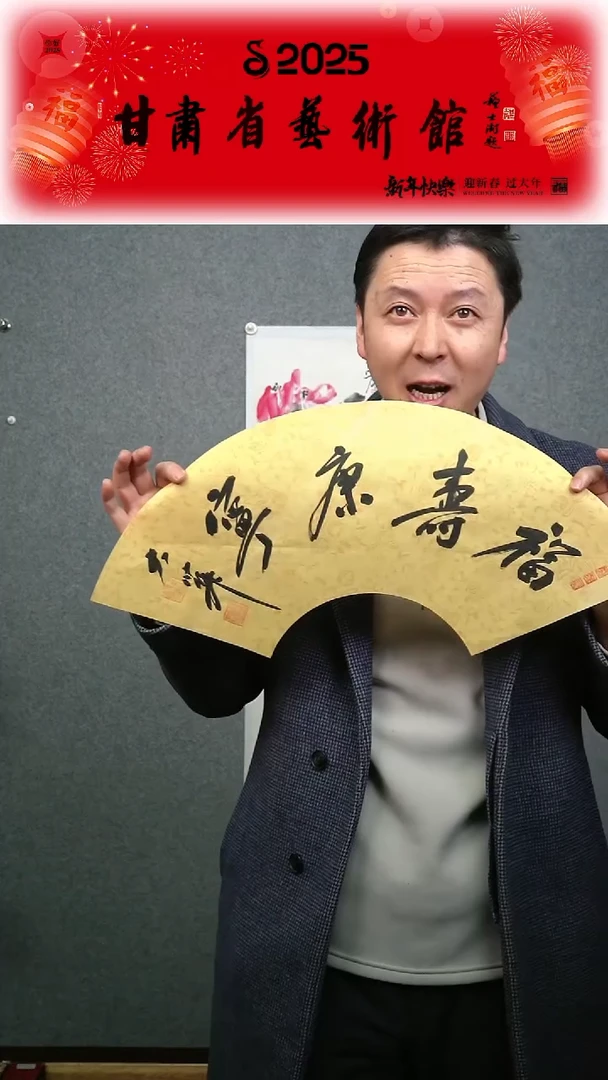 2025
甘肅省藝術館
新年快樂 迎新春 过大年
福
福
福壽康寧